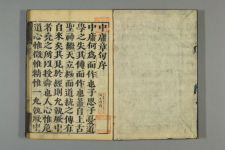 中庸章句序
中庸何爲而作也子思子憂道
學之失其傳而作也蓋自上古
聖神繼天立極而道統之傳有
自來矣其見於經則允執厥中
者堯之所以授舜也人心惟危
道心惟微惟精惟一允執厥中